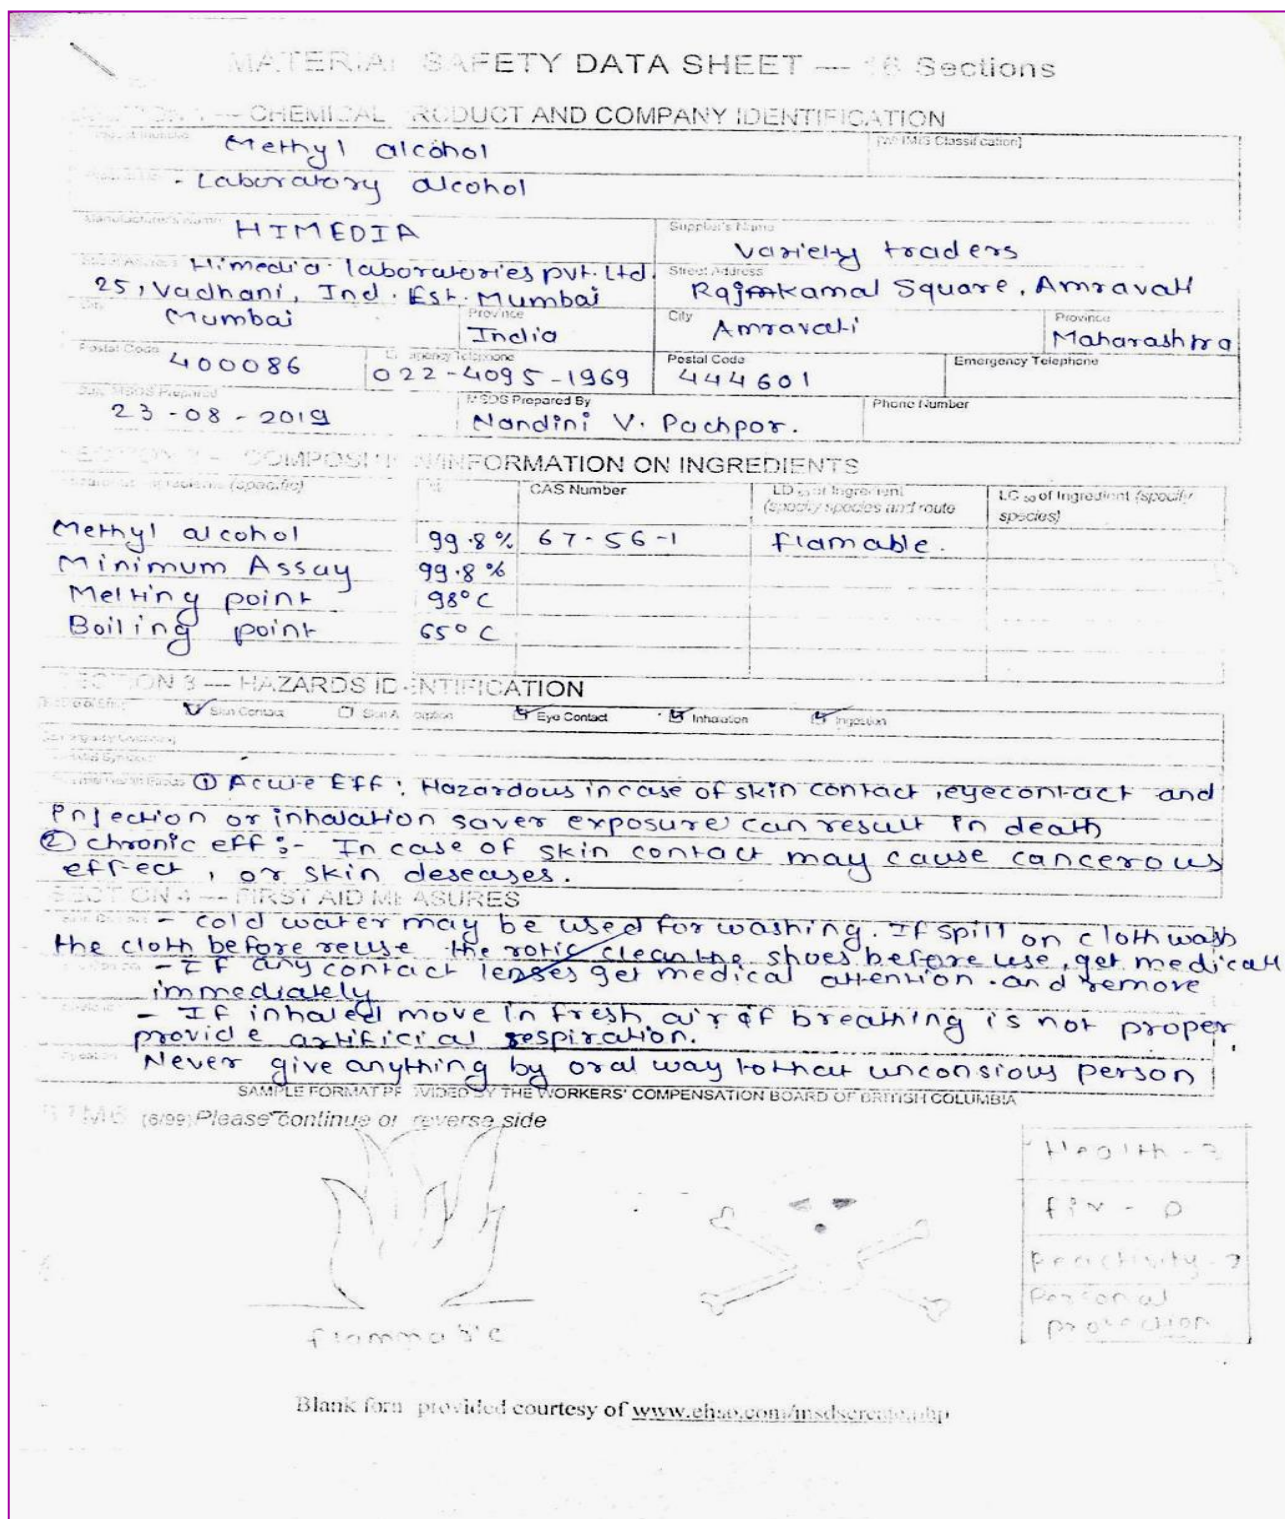 MATERIAL SAFETY DATA SHEET — 16 Sections
CHEMICAL PRODUCT AND COMPANY IDENTIFICATION
[WHMIS Classification]
Methyl alcohol
- Laboratory alcohol
Manufacturer's Name HIMEDIA
Supplier's Name Variety traders
Himedia laboratories pvt. Ltd.
25, Vadhani, Ind. Est. Mumbai
Street Address Rajkamal Square, Amravati
City Mumbai
Province India
City Amravati
Province Maharashtra
Postal Code 400086
Emergency Telephone 022-4095-1969
Postal Code 444601
Emergency Telephone
Date MSDS Prepared 23-08-2019
MSDS Prepared By Nandini V. Pachpor.
Phone Number
SECTION 2 — COMPOSITION/INFORMATION ON INGREDIENTS
(specific) % CAS Number LD50 of Ingredient (specify species and route LC50 of Ingredient (specify species)
Methyl alcohol 99.8% 67-56-1 flamable.
Minimum Assay 99.8%
Melting point 98°C
Boiling point 65°C
SECTION 3 — HAZARDS IDENTIFICATION
Skin Contact Skin Absorption Eye Contact Inhalation Ingestion
① Acute Eff : Hazardous incase of skin contact, eyecontact and
Injection or inhalation saver exposure can result in death
② chronic eff :- In case of skin contact may cause cancerous
effect, or skin deseases.
SECTION 4 — FIRST AID MEASURES
- cold water may be used for washing. If spill on cloth wash
the cloth before reuse the clean the shoes before use, get medical
- If any contact lenses get medical attention. and remove
immediately
- If inhaled move in fresh air if breathing is not proper
provide artificial respiration.
Never give anything by oral way tothat unconsious person
SAMPLE FORMAT PROVIDED BY THE WORKERS' COMPENSATION BOARD OF BRITISH COLUMBIA
(6/99) Please continue on reverse side
Health - 3
fir - 0
Reactivity - 2
Personal
protection
flammable
Blank form provided courtesy of www.ehso.com/msdscreate.php